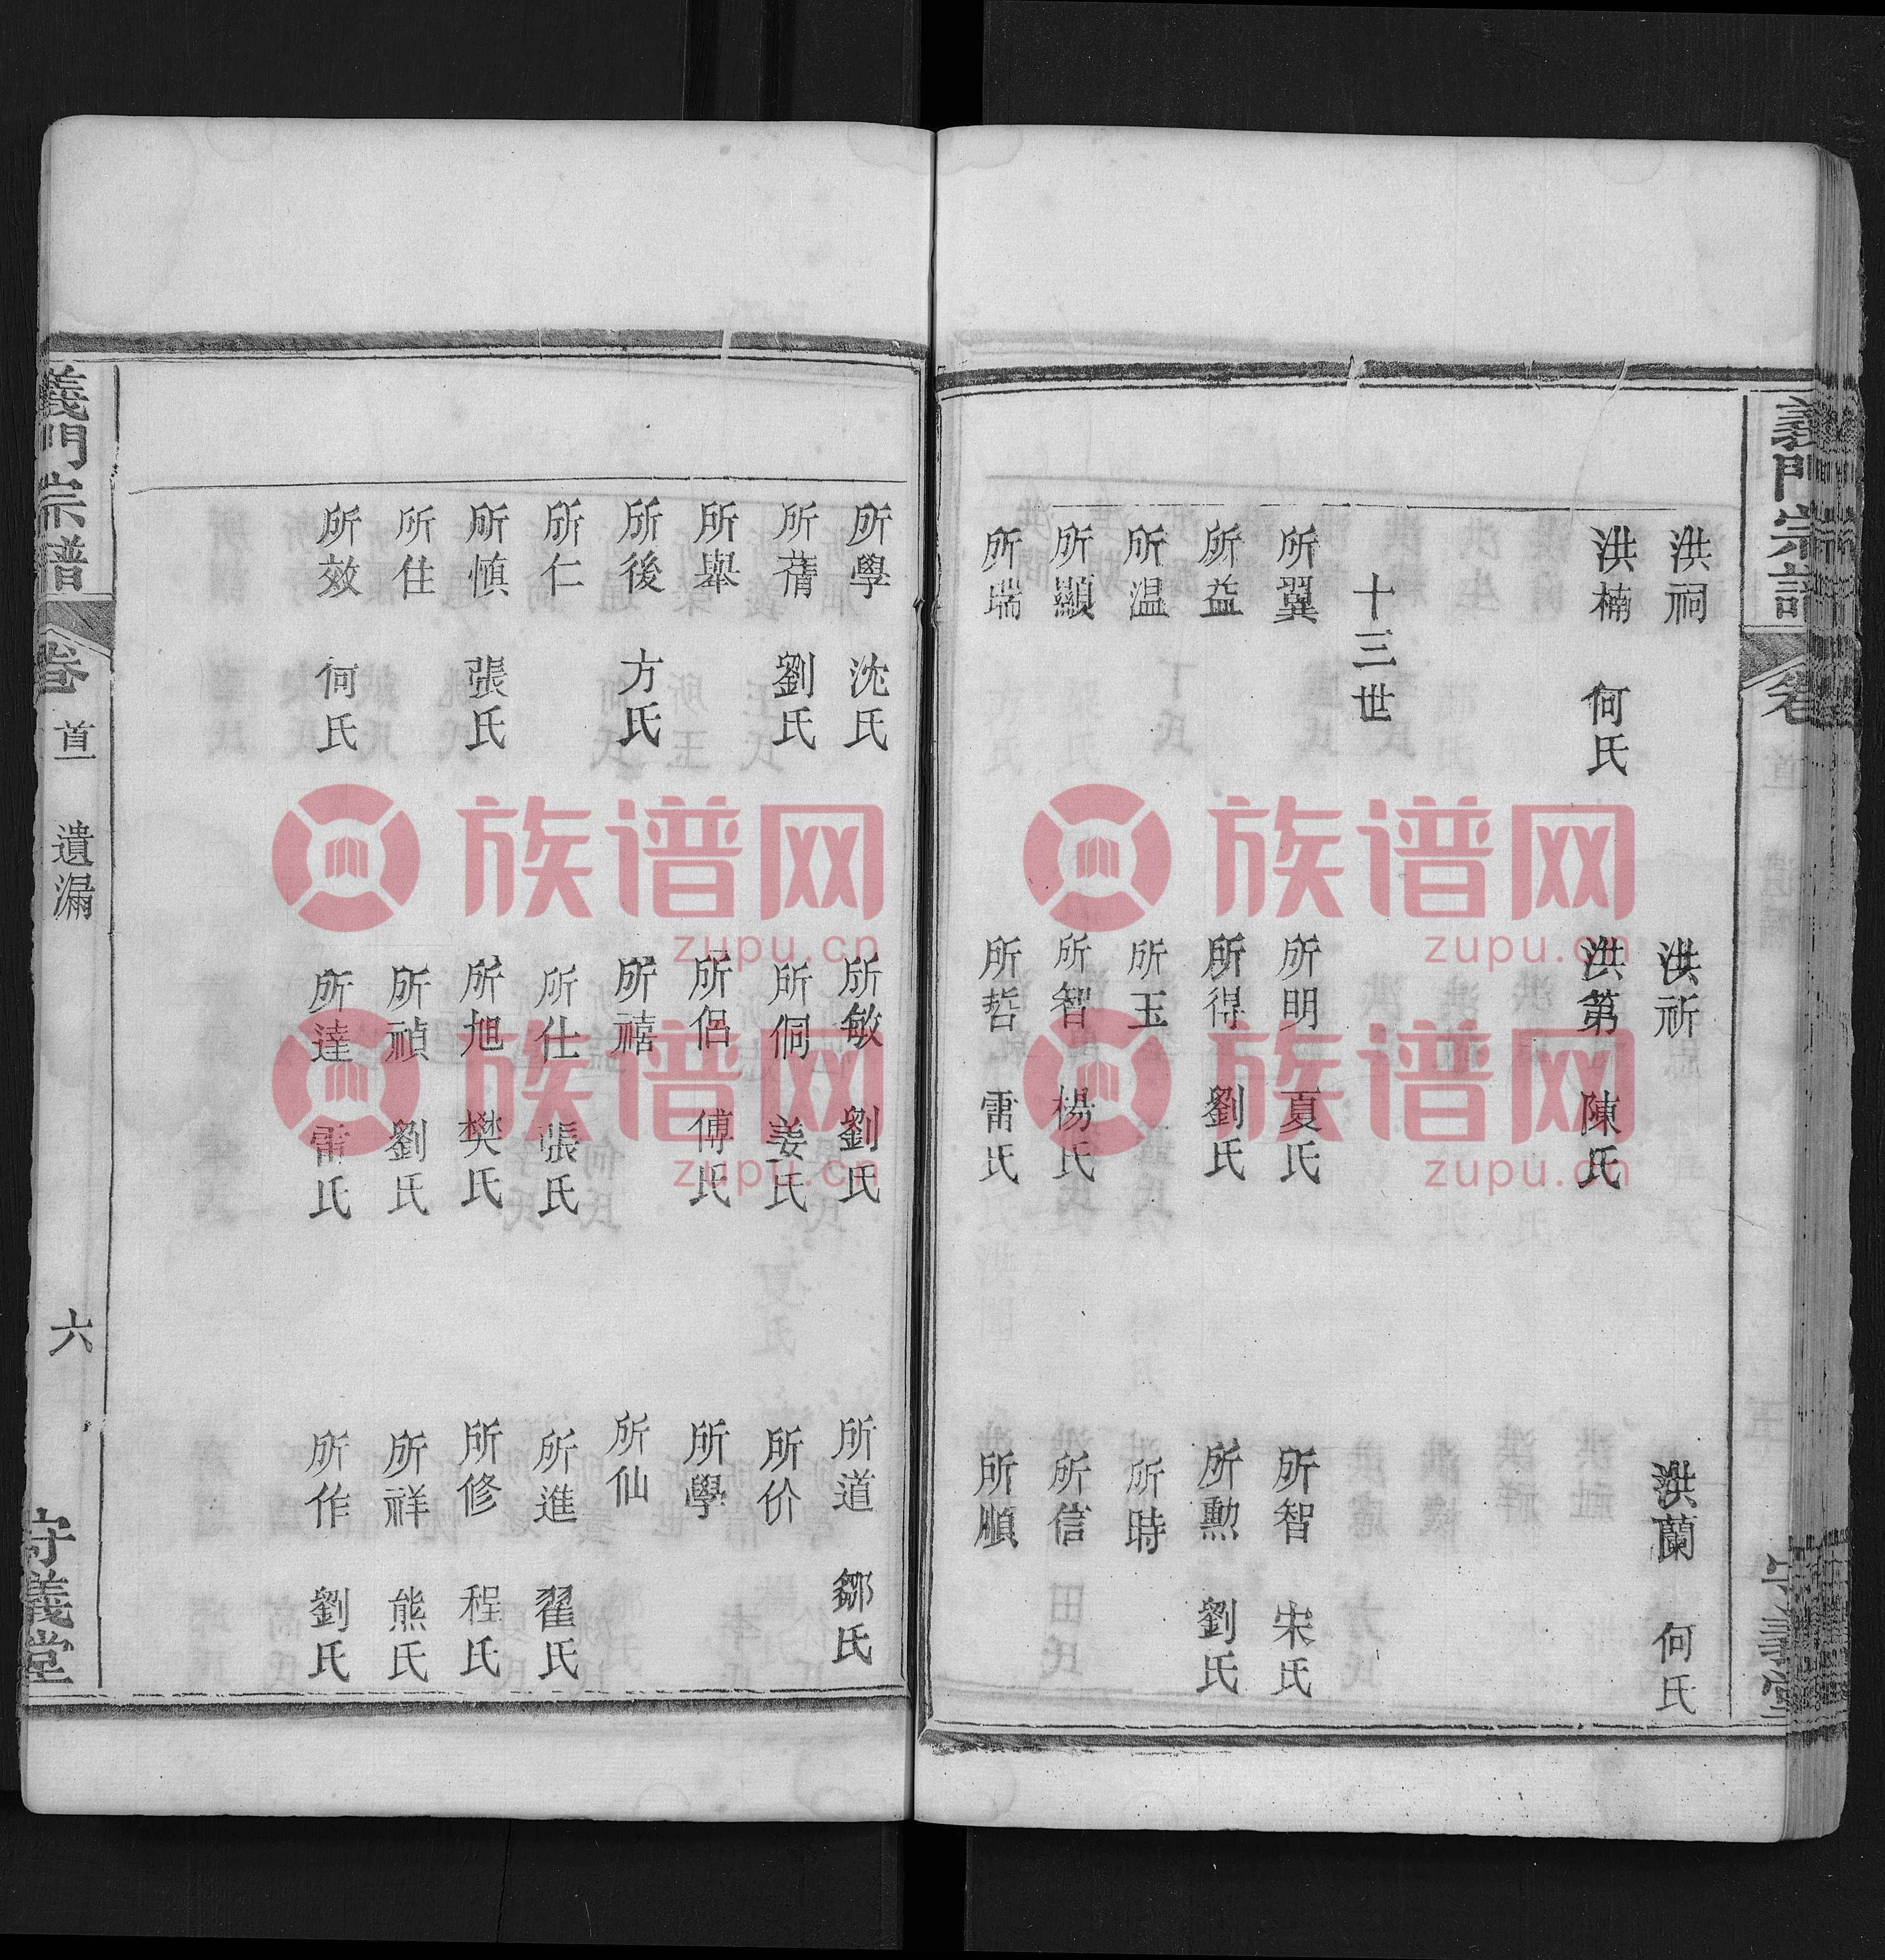 義門宗譜
洪祠 洪祈 洪蘭 何氏
洪楠 何氏 洪第 陳氏
十三世
所翼 所明 夏氏 所智 宋氏
所益 所得 劉氏 所勲 劉氏
所温 所玉 所時
所顯 所智 楊氏 所信
所瑞 所哲 雷氏 所順
所學 沈氏 所敏 劉氏 所道 鄒氏
所蒨 劉氏 所侗 姜氏 所价
所舉 所侣 傅氏 所學
所後 方氏 所禧 所仙
所仁 所仕 張氏 所進 翟氏
所慎 張氏 所旭 樊氏 所修 程氏
所住 所禎 劉氏 所祥 熊氏
所效 何氏 所達 雷氏 所作 劉氏
義門宗譜 卷首 遺漏 六 守義堂
族谱网
zupu.cn
族谱网
zupu.cn
族谱网
zupu.cn
族谱网
zupu.cn